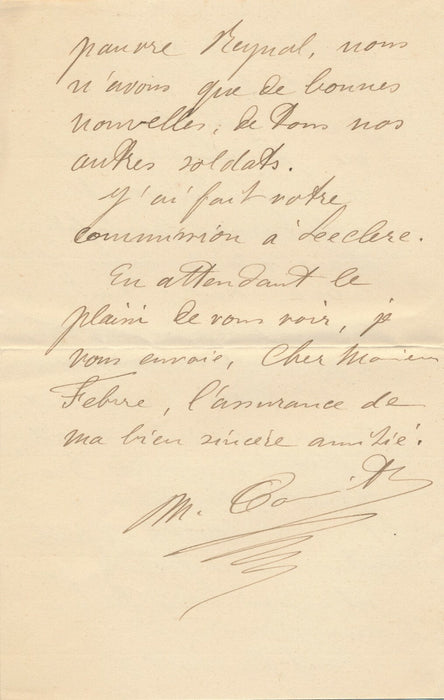 pauvre Reynal, nous
n'avons que de bonnes
nouvelles, de tous nos
autres soldats.
J'ai fait votre
commission à Leclerc.
En attendant le
plaisir de vous voir, je
vous envoie, Cher Monsieur
Febvre, l'assurance de
ma bien sincère amitié.
M.